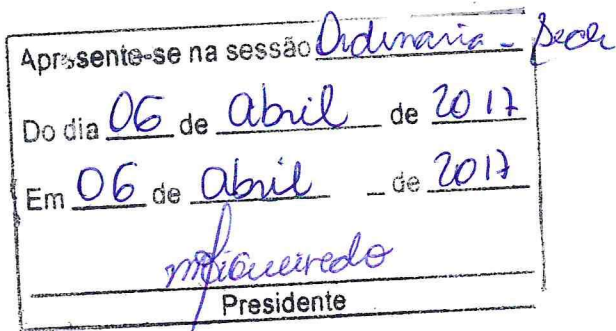 Apresente-se na sessão Ordinaria -
Do dia 06 de abril de 2017
Em 06 de abril de 2017
mfigueiredo
Presidente